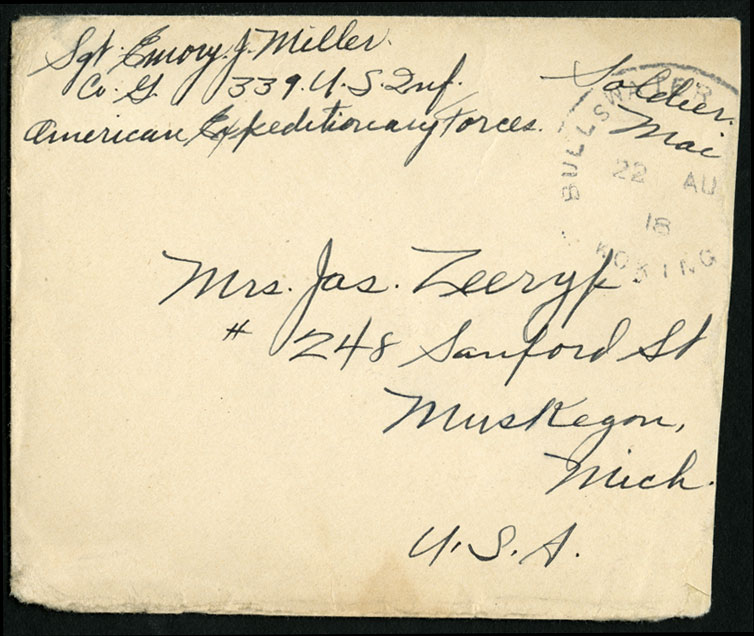 Sgt. Emory. J. Miller.
Co. G. 339. U.S. Inf.
American Expeditionary Forces.
Soldier.
Mai
BULLSWATER
22 AU
18
WOKING
Mrs. Jas. Zeeryp
# 248 Sanford St
Muskegon,
Mich.
U.S.A.